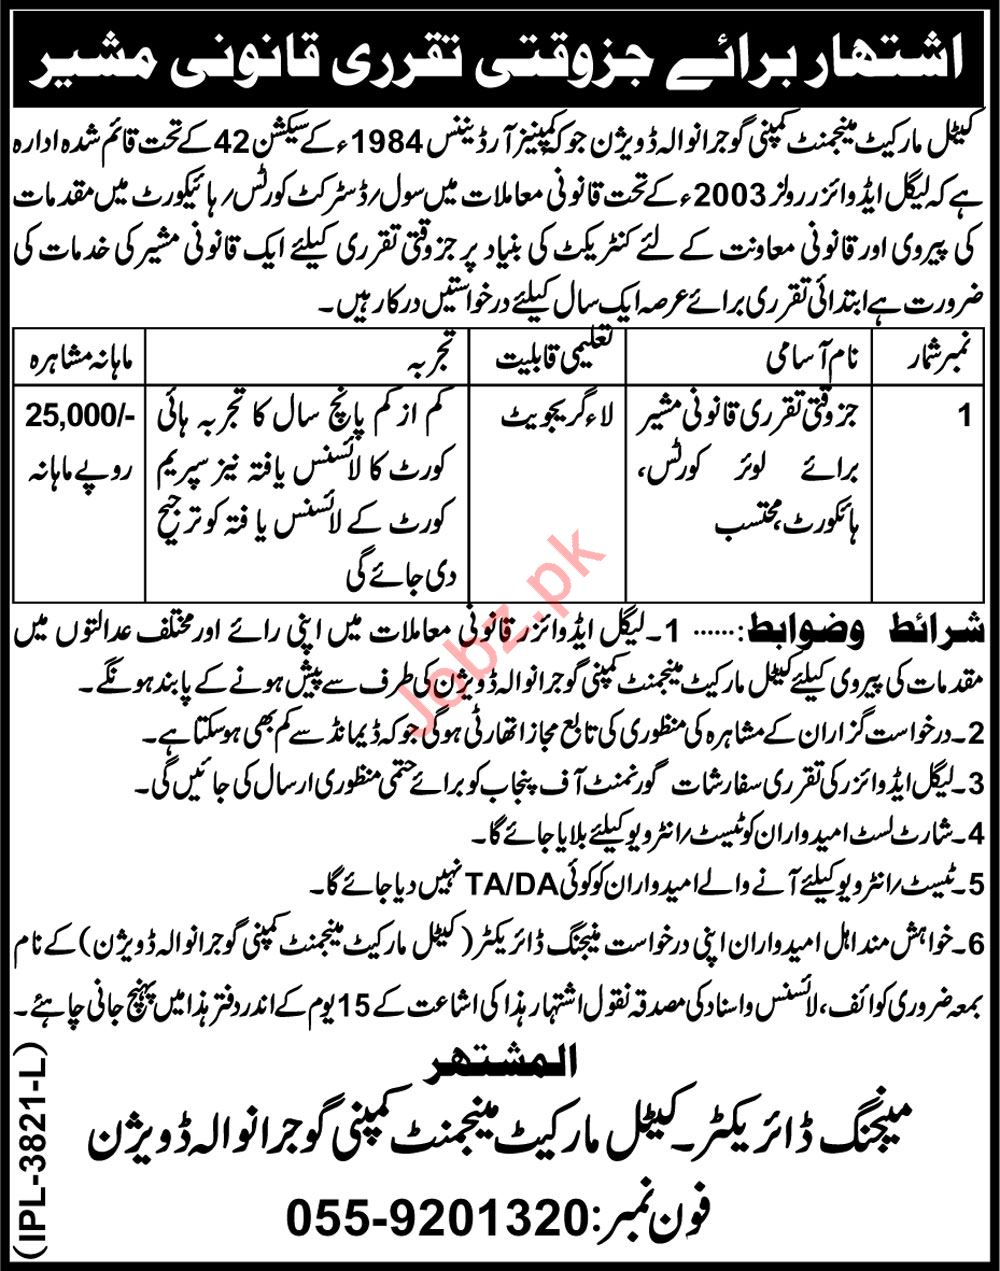 اشتہار برائے جزوقتی تقرری قانونی مشیر
کیٹل مارکیٹ مینجمنٹ کمپنی گوجرانوالہ ڈویژن جو کہ کمپنیز آرڈیننس 1984ء کے سیکشن 42 کے تحت قائم شدہ ادارہ
ہے کہ لیگل ایڈوائزر رولز 2003ء کے تحت قانونی معاملات میں سول/ڈسٹرکٹ کورٹس/ہائیکورٹ میں مقدمات
کی پیروی اور قانونی معاونت کے لئے کنٹریکٹ کی بنیاد پر جزوقتی تقرری کیلئے ایک قانونی مشیر کی خدمات کی
ضرورت ہے ابتدائی تقرری برائے عرصہ ایک سال کیلئے درخواستیں درکار ہیں۔
نمبرشمار نام آسامی تعلیمی قابلیت تجربہ ماہانہ مشاہرہ
1 جزوقتی تقرری قانونی مشیر لاء گریجویٹ کم از کم پانچ سال کا تجربہ ہائی 25,000/-
برائے لوئر کورٹس، کورٹ کا لائسنس یافتہ نیز سپریم روپے ماہانہ
ہائکورٹ، محتسب کورٹ کے لائسنس یافتہ کو ترجیح
دی جائے گی
شرائط وضوابط:...... 1۔ لیگل ایڈوائزر قانونی معاملات میں اپنی رائے اور مختلف عدالتوں میں
مقدمات کی پیروی کیلئے کیٹل مارکیٹ مینجمنٹ کمپنی گوجرانوالہ ڈویژن کی طرف سے پیش ہونے کے پابند ہونگے۔
2۔ درخواست گزاران کے مشاہرہ کی منظوری کی تابع مجاز اتھارٹی ہوگی جو کہ ڈیمانڈ سے کم بھی ہوسکتا ہے۔
3۔ لیگل ایڈوائزر کی تقرری سفارشات گورنمنٹ آف پنجاب کو برائے حتمی منظوری ارسال کی جائیں گی۔
4۔ شارٹ لسٹ امیدواران کو ٹیسٹ/انٹرویو کیلئے بلایا جائے گا۔
5۔ ٹیسٹ/انٹرویو کیلئے آنے والے امیدواران کو کوئی TA/DA نہیں دیا جائے گا۔
6۔ خواہش مند اہل امیدواران اپنی درخواست مینجنگ ڈائریکٹر (کیٹل مارکیٹ مینجمنٹ کمپنی گوجرانوالہ ڈویژن) کے نام
بمعہ ضروری کوائف، لائسنس و اسناد کی مصدقہ نقول اشتہار ہذا کی اشاعت کے 15 یوم کے اندر دفتر ہذا میں پہنچ جانی چاہئے۔
المشتہر
مینجنگ ڈائریکٹر۔ کیٹل مارکیٹ مینجمنٹ کمپنی گوجرانوالہ ڈویژن
فون نمبر: 055-9201320
(IPL-3821-L)
Jobz.pk